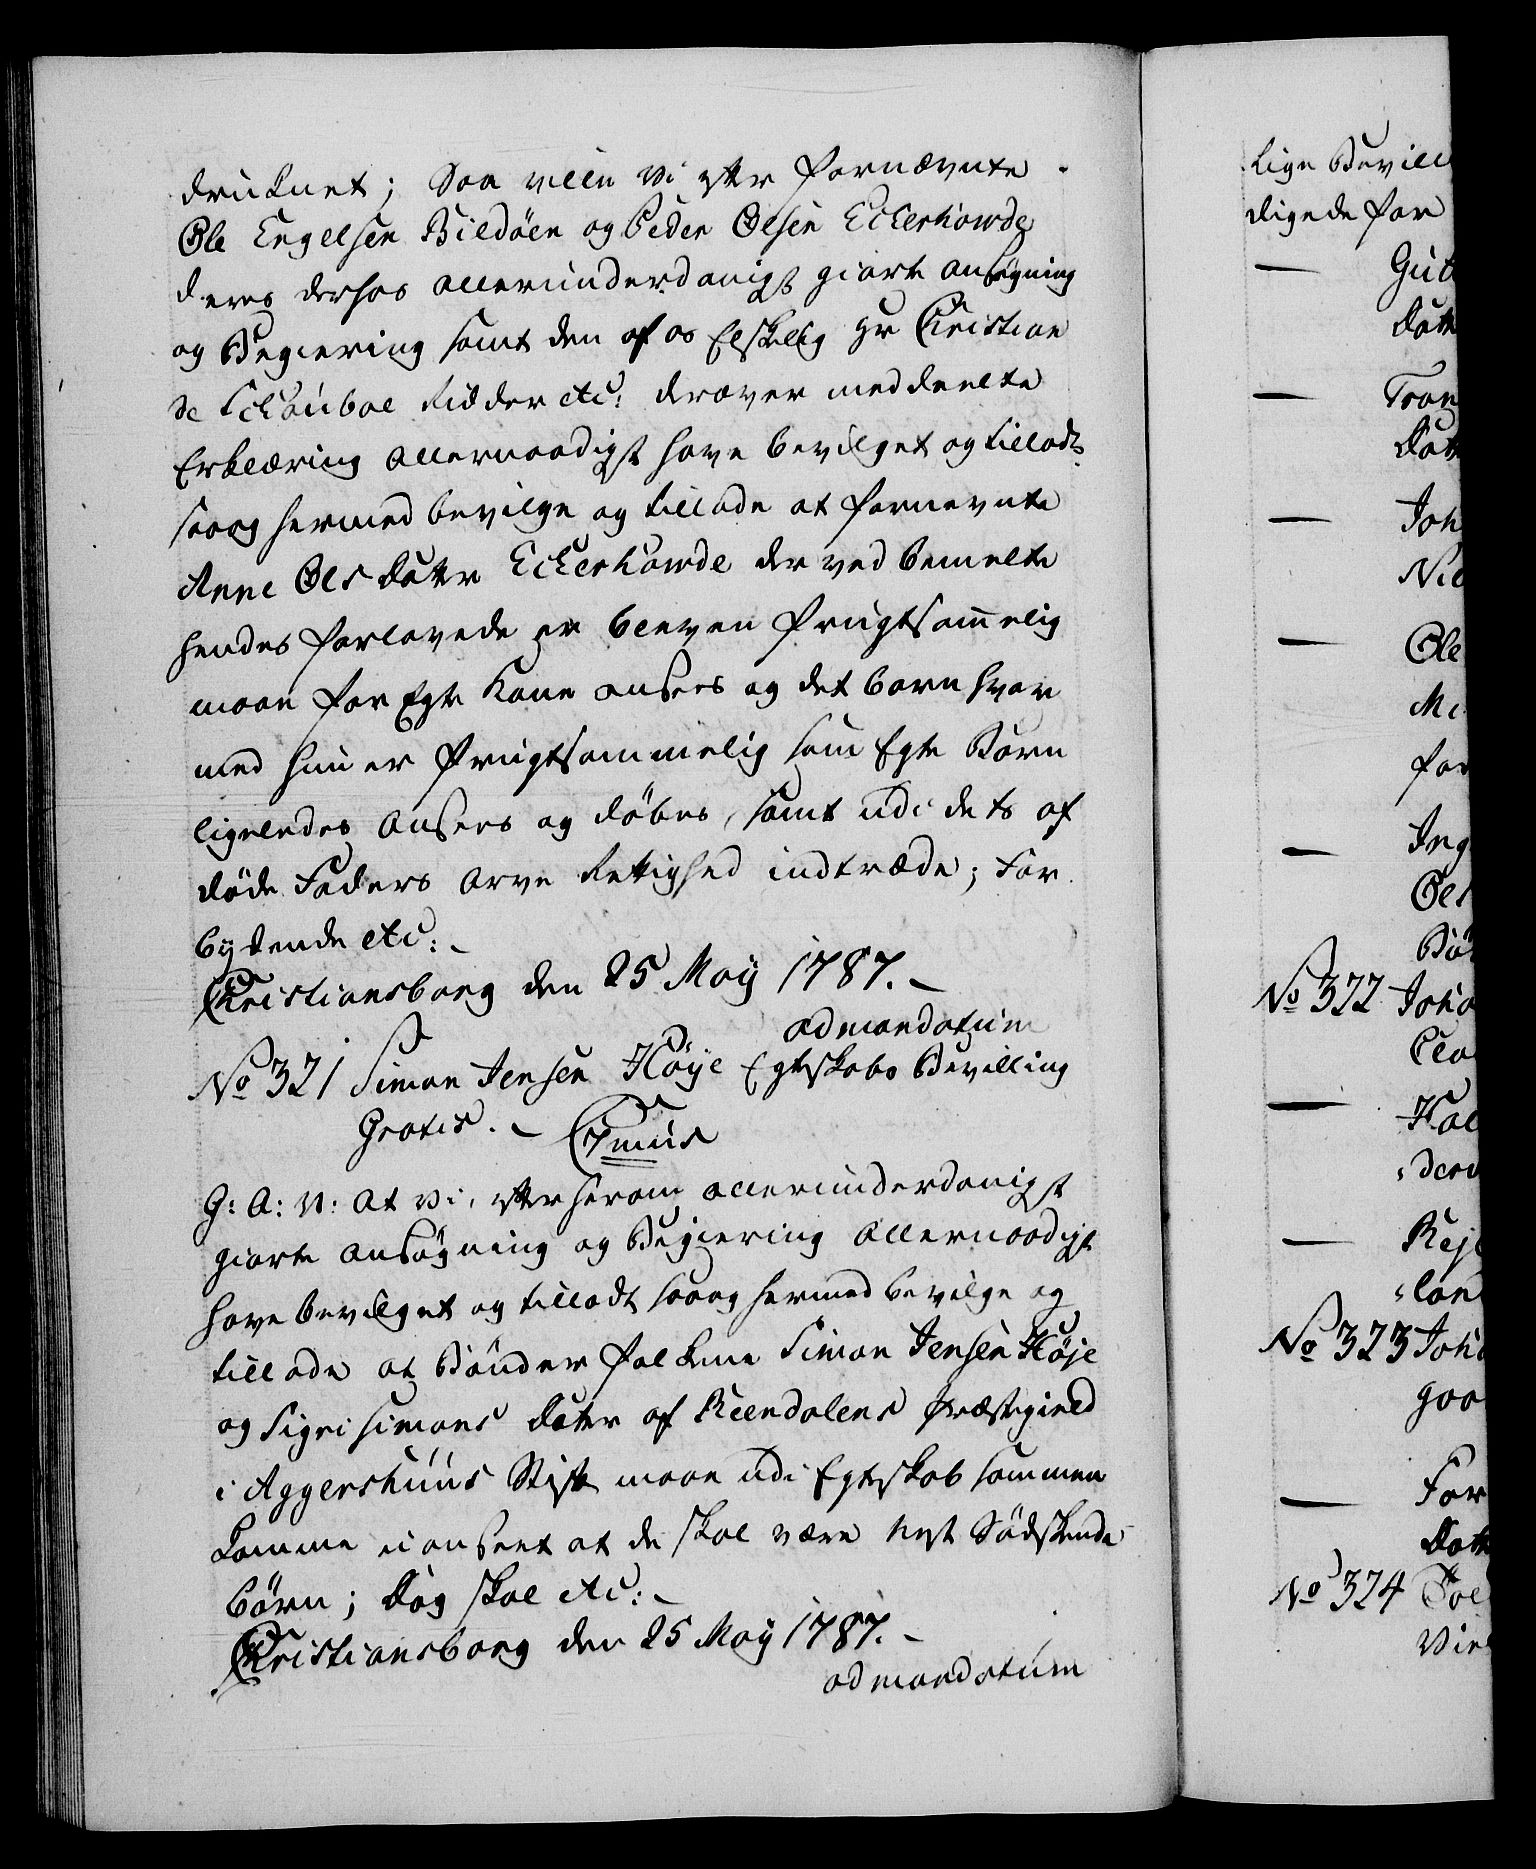 druknet; Saa ville Vi efter fornævnte
Ole Engelsen Bildöen og Peder Olsen Eckerhowde
deres derhos allerunderdanigst giorte ansøgning
og Begiering samt den af os Elskelig Hr Christian
de Schouboe Ridder etc: derover meddeelte
Erklæring allernaadigst have bevilget og tilladt,
saaog hermed bevilge og tillade at fornevnte
Anne Ols datter Eckerhowde der ved bemelte
hendes forlovede er bleven frugtsom̄elig
maae for Egte Kone ansees og det barn hvor
med hun er frugtsommelig som Egte Barn
ligeledes ansees og döbes, samt udi dets af
döde Faders Arve Rettighed indtræde; For
bydende etc:
Christiansborg den 25 May 1787.
ad mandatum
No 321 Simon Jensen Höye Egteskabs Bevilling
Gratis.
C7mus
G: A: V: At Vi, efter herom allerunderdanigst
giorte ansøgning og Begiering allernaadigst
have bevilget og tilladt saaog hermed bevilge og
tillade at Bönder folkene Simon Jensen Höje
og Sigri Simons datter af Reendalens Præstegield
i Aggershuus Stift maae udi Egteskab sammen
komme uanseet at de skal være Nest Södskende
börn; dog skal etc:
Christiansborg den 25 May 1787.
ad mandatum
Lige Bevill
digede for
— Gut
datt
— Tron
datt
— Joh
Nil
— Ole
Mi
for
— Ing
Ols
Bör
No 322 Joha
Cla
— Hal
derv
— Rej
lan
No 323 Joha
goo
— For
datt
No 324
Vin